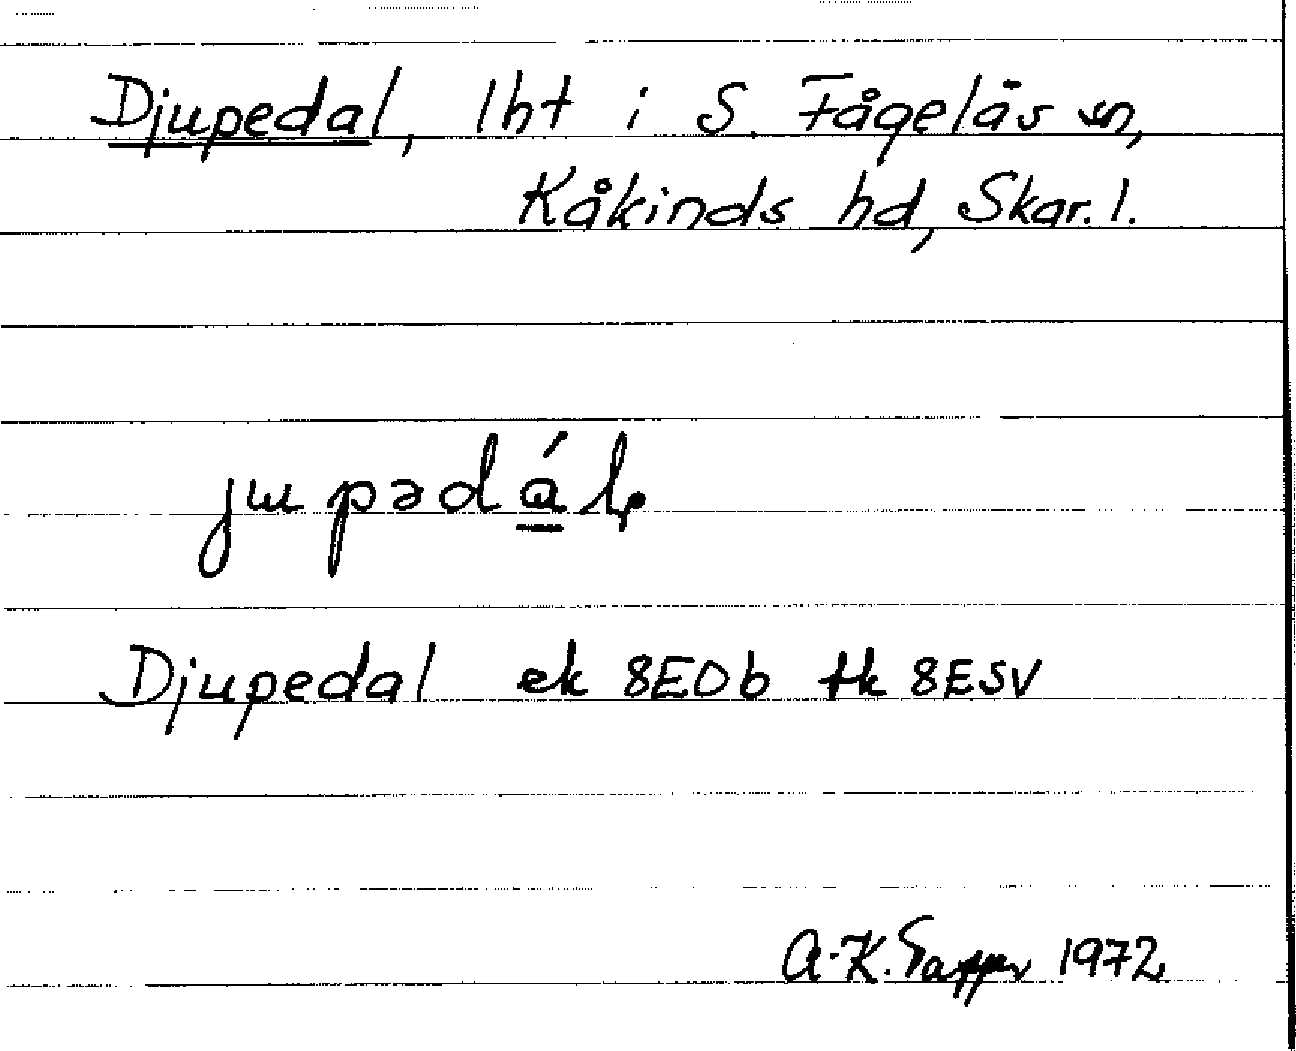 Djupedal, lht i S. Fågelås sn,
Kåkinds hd, Skar. l.
jupədá̲l
Djupedal ek 8E0b tk 8ESV
A-K. Tapper 1972